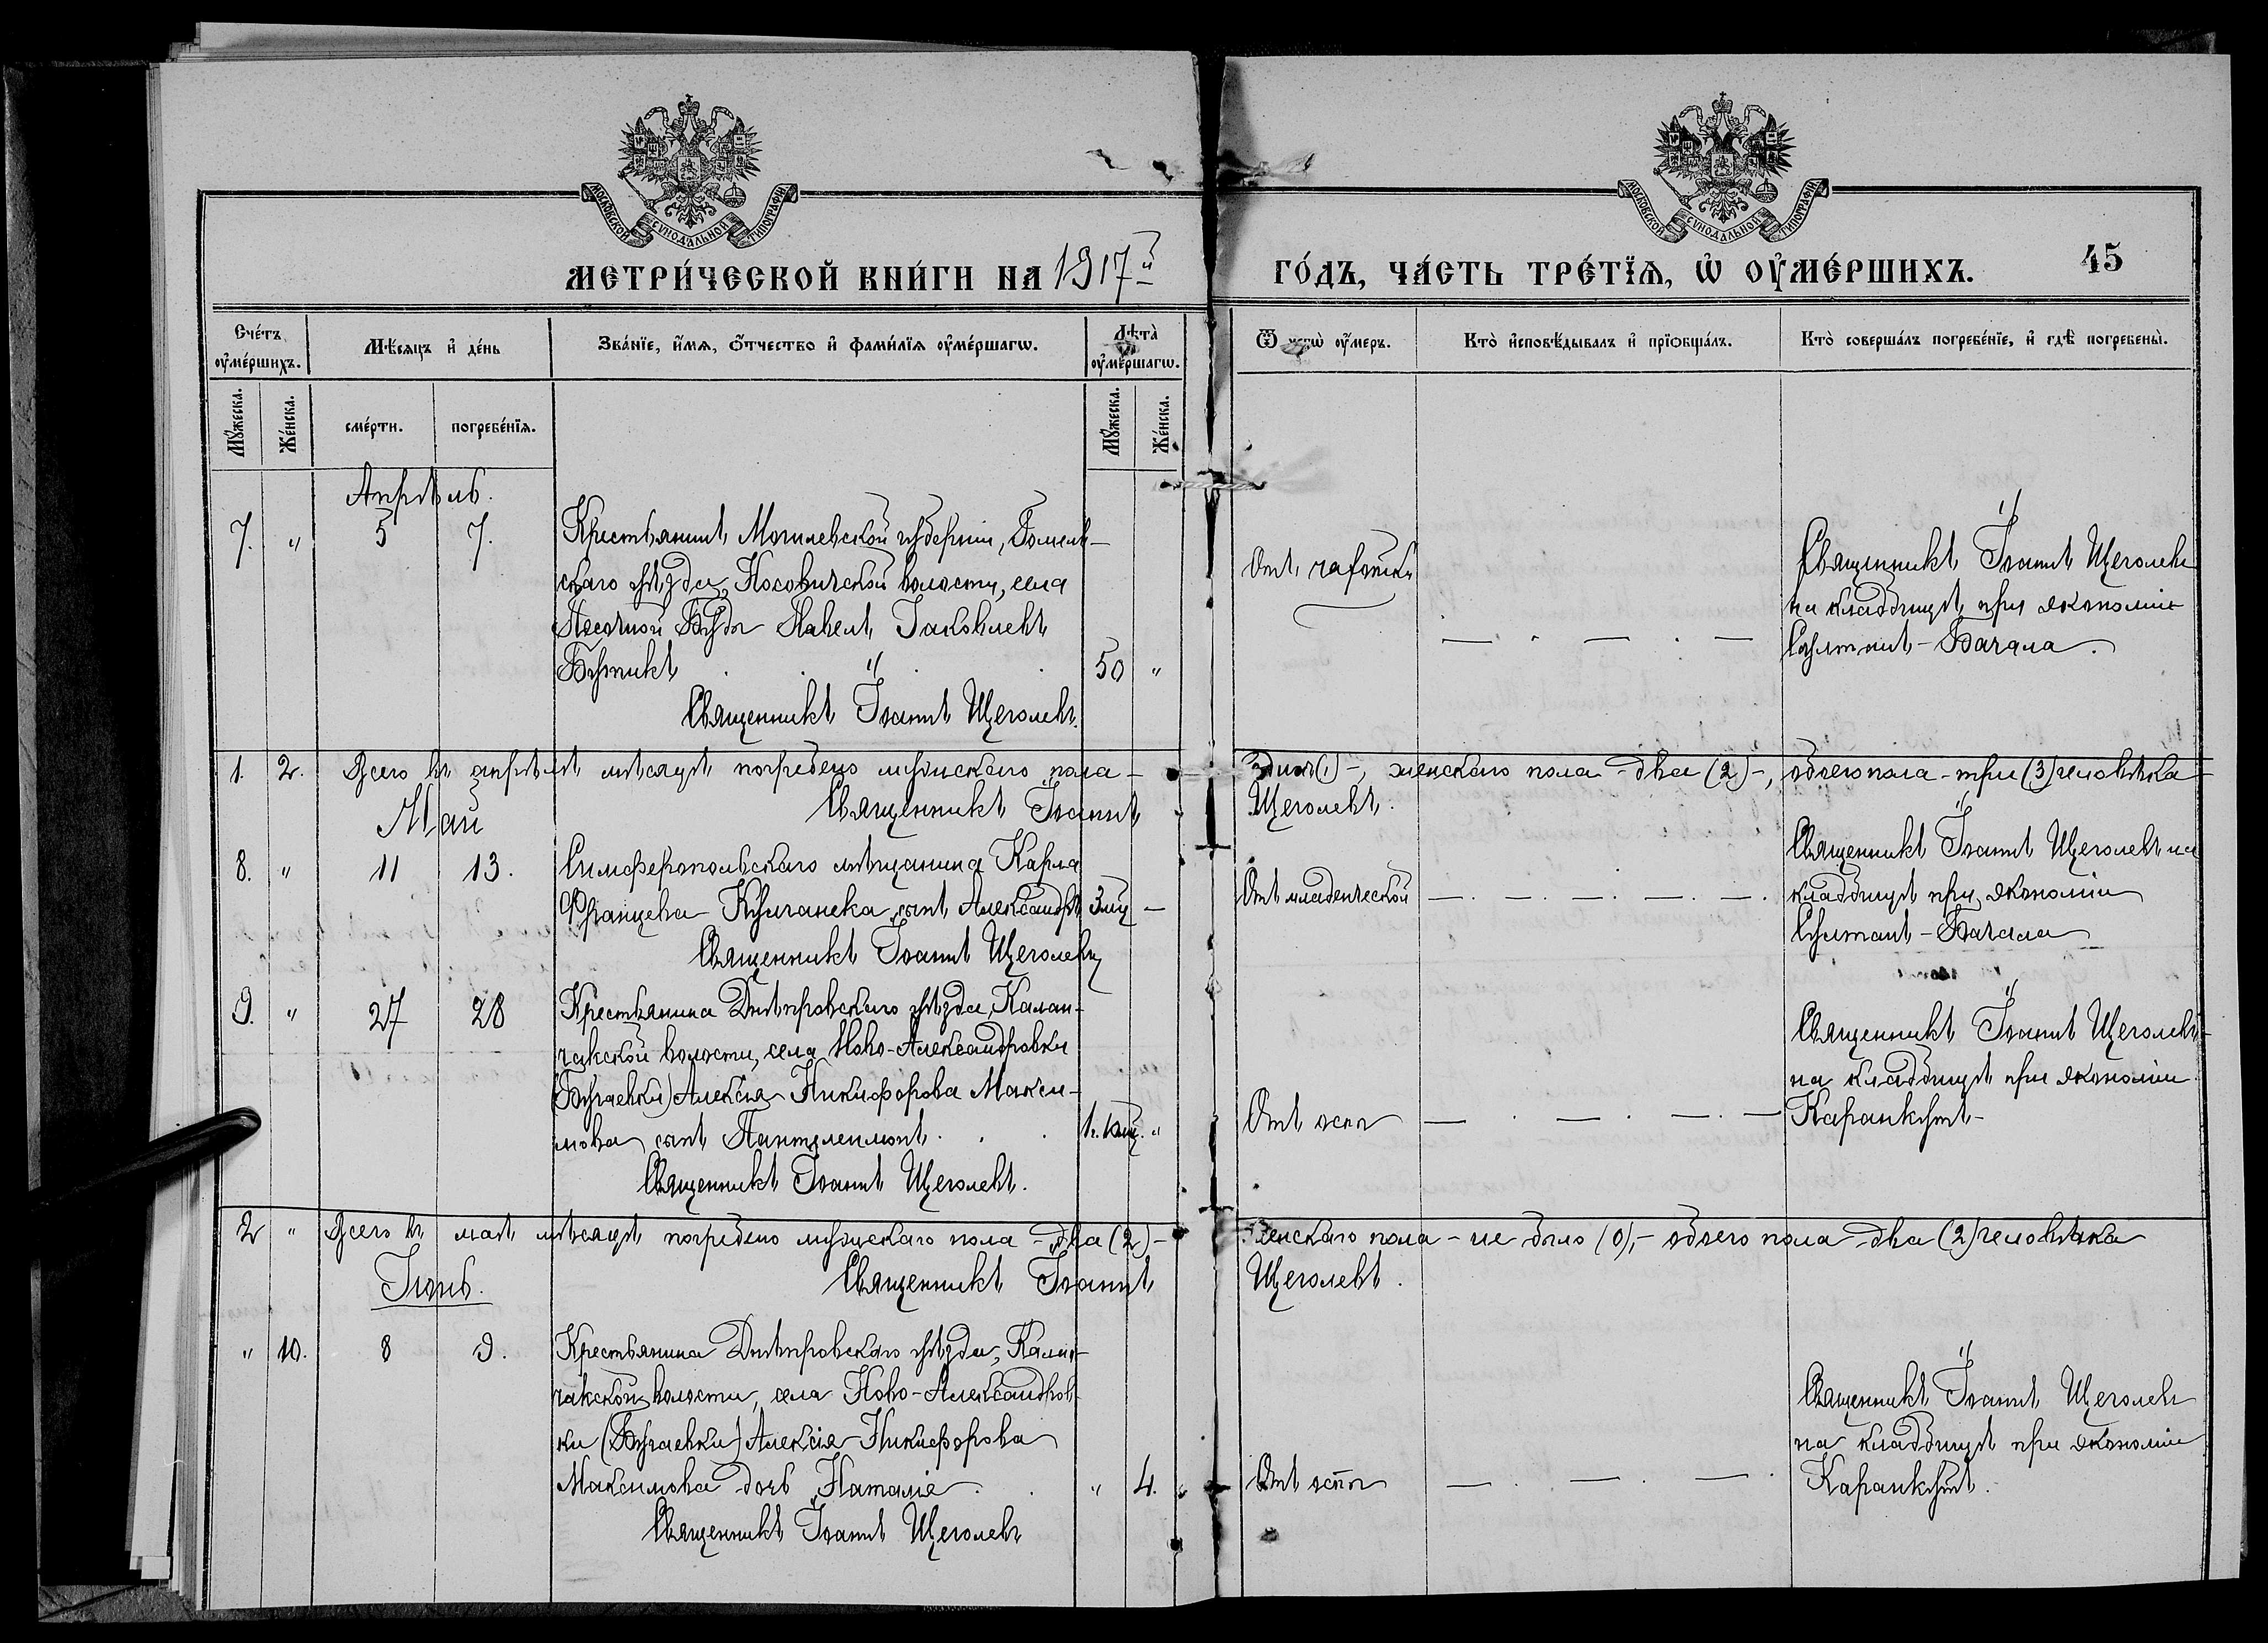 МОСКОВСКОЙ СУНОДАЛЬНОЙ ТИПОГРАФІИ
МОСКОВСКОЙ СУНОДАЛЬНОЙ ТИПОГРАФІИ
МЕТРИ́ЧЕСКОЙ КНИ́ГИ НА 1917й
ГО́ДЪ, ЧА́СТЬ ТРЕ́ТЇѦ, Ѡ҆ ОУ҆МЕ́РШИХЪ.
45
Сче́тъ оу҆ме́ршихъ.
Мѣ́сяцъ и҆ де́нь
Зва́нїе, и҆́мѧ, ѻ҆́тчество и҆ фами́лїѧ оу҆ме́ршагѡ.
Лѣ́та оу҆ме́ршагѡ.
Ѿ чегѡ̀ оу҆́меръ.
Кто̀ и҆сповѣ́дывалъ и҆ прїѻбща́лъ.
Кто̀ соверша́лъ погребе́нїе, и҆ гдѣ̀ погребены̀.
Мꙋ́жеска.
Же́нска.
сме́рти.
погребе́нїѧ.
Мꙋ́жеска.
Же́нска.
Апрѣль.
7. " 5 7. Крестьянинъ Могилевской губерніи, Гомель-
скаго уѣзда, Носовичской волости, села
Песочной Буды Павелъ Іаковлевъ
50 "
Священникъ Іоаннъ Щеголевъ.
Отъ чахотки
Священникъ Іоаннъ Щеголевъ
на кладбищѣ при экономіи
Султанъ-Бачала.
1. 2. Всего въ апрѣлѣ мѣсяцѣ погребено мужскаго пола -
одинъ (1) -, женскаго пола - два (2) -, обоего пола - три (3) человѣка
Священникъ Іоаннъ
Щеголевъ.
Май
8. " 11 13. Симферопольскаго мѣщанина Карла
Францева сынъ Александръ 3 мц —
Священникъ Іоаннъ Щеголевъ
Отъ младенческой
Священникъ Іоаннъ Щеголевъ на
кладбищѣ при экономіи
Султанъ-Бачала
9. " 27 28 Крестьянина Днѣпровскаго уѣзда, Калан-
чакской волости, села Ново-Александровки
(Бугаевки) Алексія Никифорова Макси-
мова сынъ Пантелеимонъ. "
Священникъ Іоаннъ Щеголевъ.
Отъ оспы
Священникъ Іоаннъ Щеголевъ
на кладбищѣ при экономіи
Каранкутъ-
2 " Всего въ маѣ мѣсяцѣ погребено мужескаго пола - два (2) -
женскаго пола - не было (0), - обоего пола два (2) человѣка
Священникъ Іоаннъ
Щеголевъ.
Іюнь.
" 10. 8 9. Крестьянина Днѣпровскаго уѣзда, Калан-
чакской волости, села Ново-Александров-
ки (Бугаевки) Алексія Никифорова
Максимова дочь Наталіе " 4.
Священникъ Іоаннъ Щеголевъ
Отъ оспы
Священникъ Іоаннъ Щеголевъ
на кладбищѣ при экономіи
Каранкутъ.